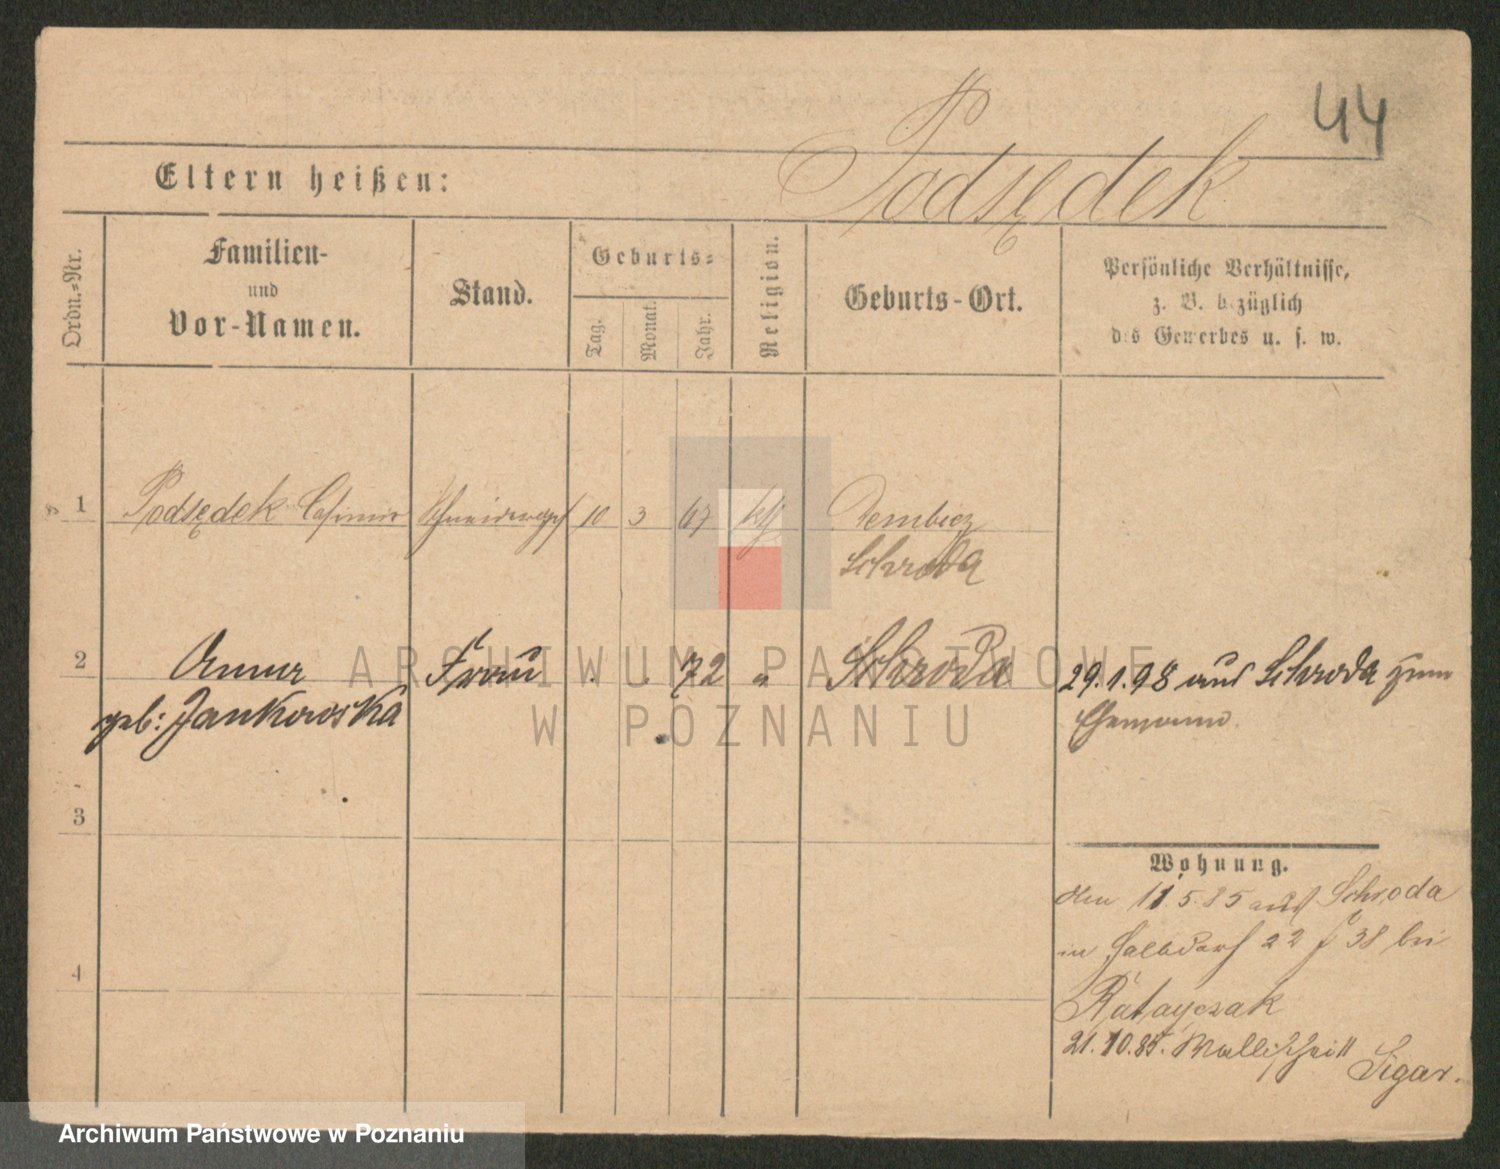 44
Eltern heißen:
Podsędek
Ordn.-Nr.
Familien-
und
Vor-Namen.
Stand.
Geburts-
Tag.
Monat.
Jahr.
Religion.
Geburts-Ort.
Persönliche Verhältnisse,
z. B. bezüglich
des Gewerbes u. s. w.
1 Podsędek Casimir 10 3 67 kth Dembicz
Schroda
2 Frau 72 " Schroda 29.1.98 aus Schroda zum
geb: Jankowska Ehemann.
3
Wohnung.
den 11.5.85 aus Schroda
in Halbdorf 22 38 bei
4
Ratayczak
21.10.85. Wallischei 11
Sigar.
ARCHIWUM PAŃSTWOWE
W POZNANIU
Archiwum Państwowe w Poznaniu